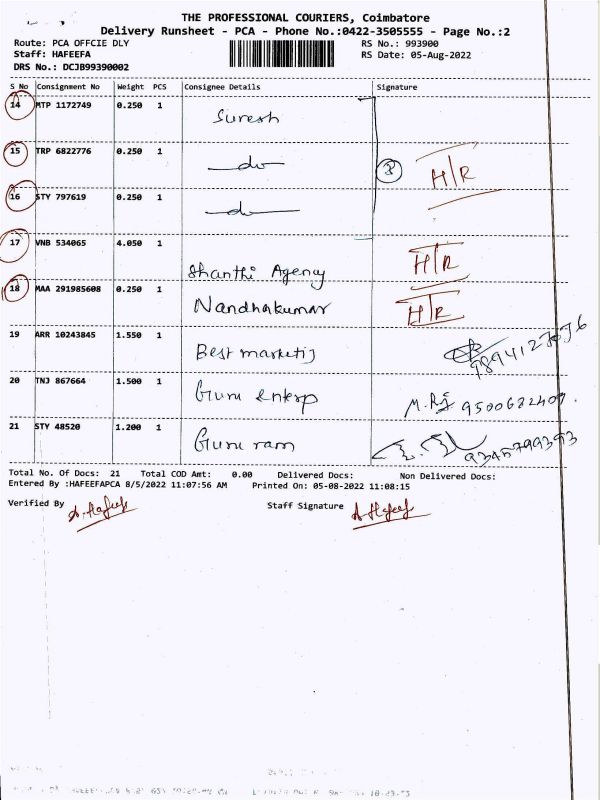 THE PROFESSIONAL COURIERS, Coimbatore
Delivery Runsheet - PCA - Phone No.:0422-3505555 - Page No.:2
Route: PCA OFFCIE DLY RS No.: 993900
Staff: HAFEEFA RS Date: 05-Aug-2022
DRS No.: DCJB99390002
S No Consignment No Weight PCS Consignee Details Signature
14 MTP 1172749 0.250 1 Suresh
15 TRP 6822776 0.250 1 do H/R
16 STY 797619 0.250 1 do
17 VNB 534065 4.050 1 Shanthi Agency H/R
18 MAA 291985608 0.250 1 Nandhakumar H/R
19 ARR 10243845 1.550 1 Best
20 TNJ 867664 1.500 1 Guru Enterp 9500682409.
21 STY 48520 1.200 1 Guru ram 9345799393
Total No. Of Docs: 21 Total COD Amt: 0.00 Delivered Docs: Non Delivered Docs:
Entered By :HAFEEFAPCA 8/5/2022 11:07:56 AM Printed On: 05-08-2022 11:08:15
Verified By A. Hafeef Staff Signature A. Hafeef